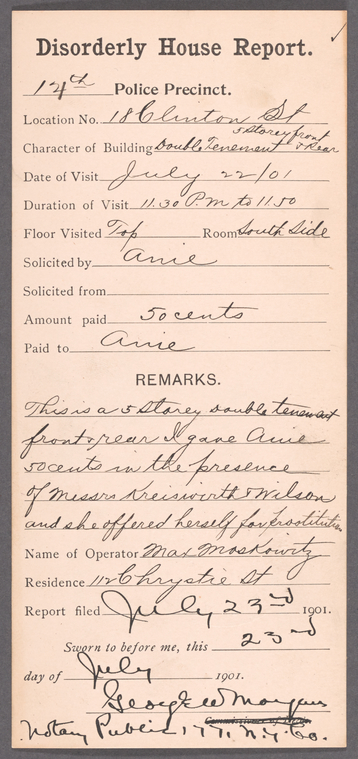 Disorderly House Report.
14th Police Precinct.
Location No. 18 Clinton St
5 Storey front
Character of Building Double Tenement & Rear
Date of Visit July 22/01
Duration of Visit 11.30 P.M to 11.50
Floor Visited Top Room South Side
Solicited by Anie
Solicited from
Amount paid 50 cents
Paid to Anie
REMARKS.
This is a 5 Storey Double tenement
front & rear I gave Anie
50 cents in the presence
of Messrs Kreiswirth & Wilson
and she offered herself for prostitution
Name of Operator Max Moskowitz
Residence 112 Chrystie St
Report filed July 23rd 1901.
Sworn to before me, this 23rd
day of July 1901.
George W Morgan
Commissioner of Deeds.
Notary Public 171. N.Y. Co.